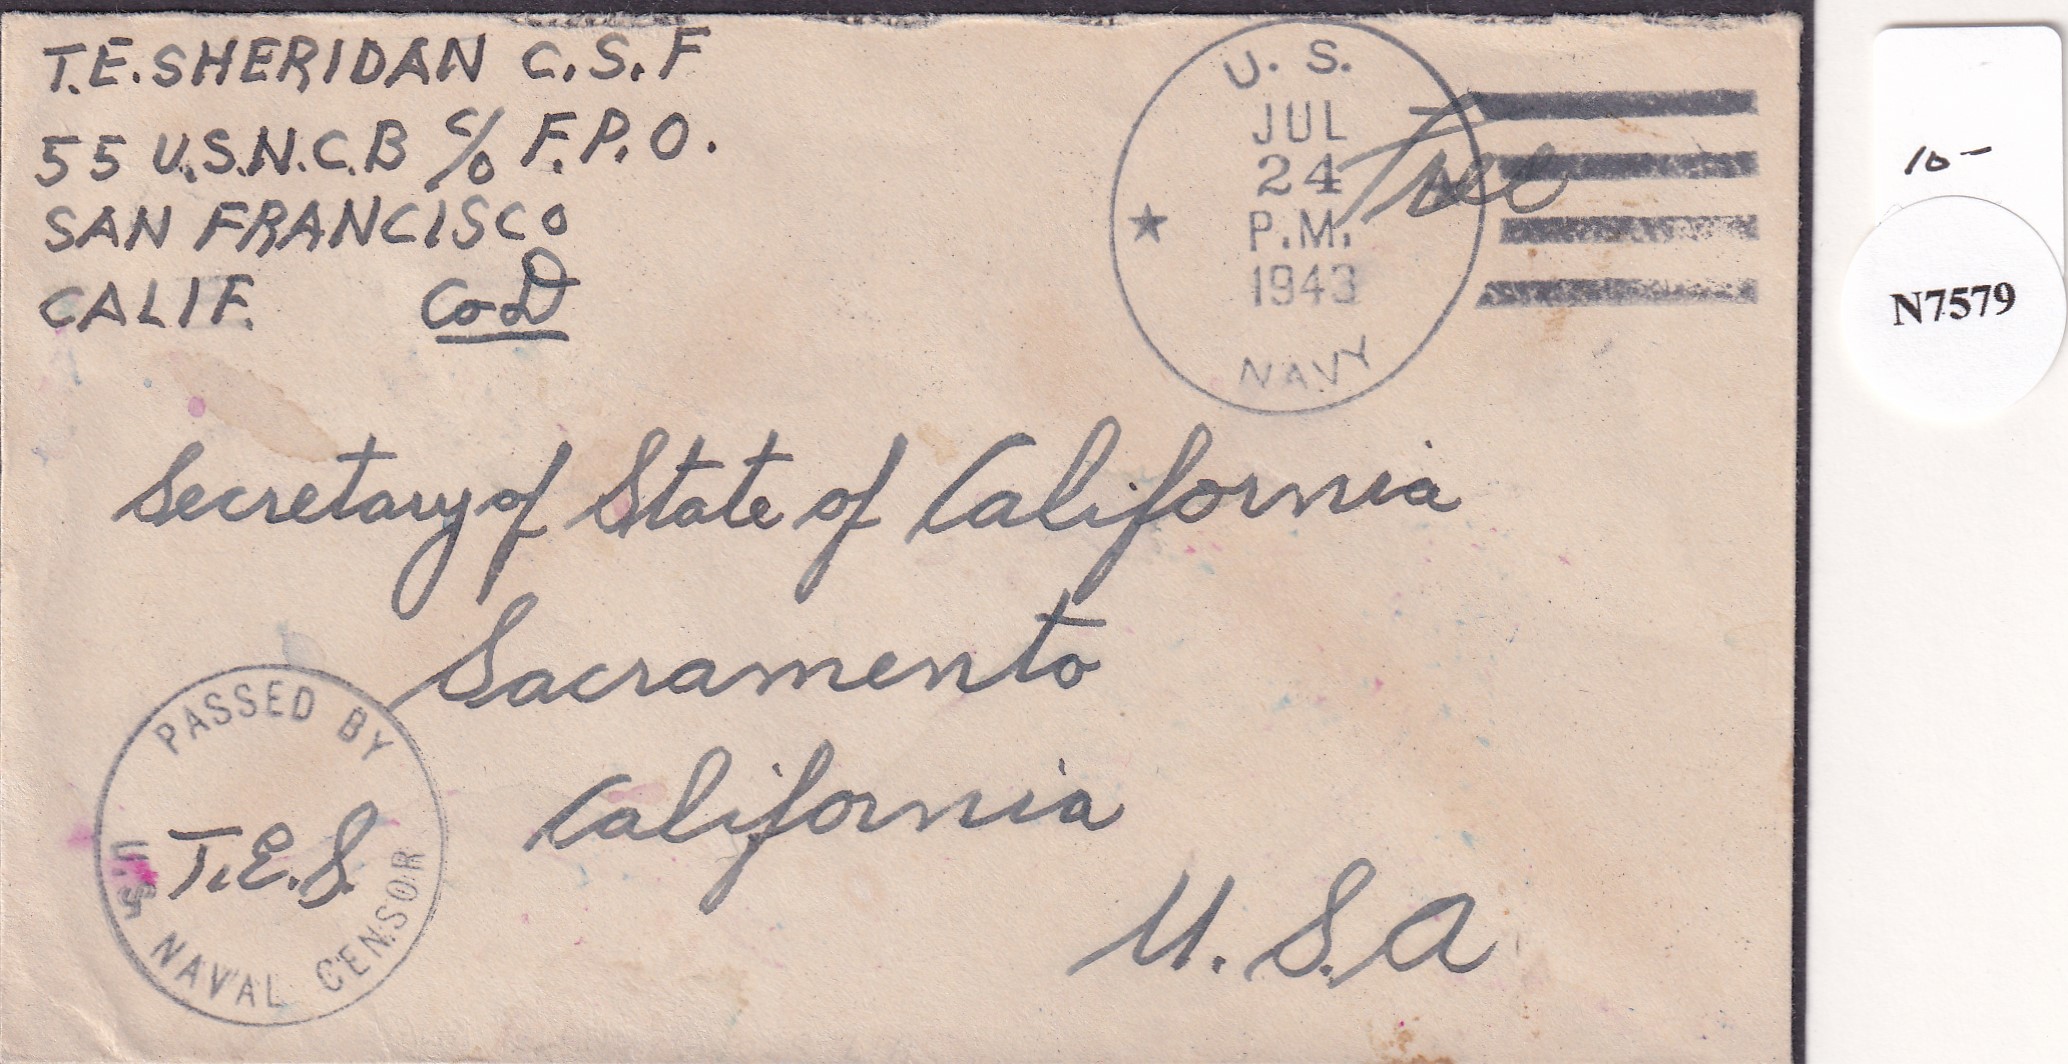 T.E. SHERIDAN C.S.F
55 U.S.N.C.B c/o F.P.O.
SAN FRANCISCO
CALIF. Co D
U. S.
JUL
24
P.M.
1943
NAVY
Free
10-
N7579
Secretary of State of California
Sacramento
California
U.S.A
PASSED BY
T.E.S.
U.S. NAVAL CENSOR